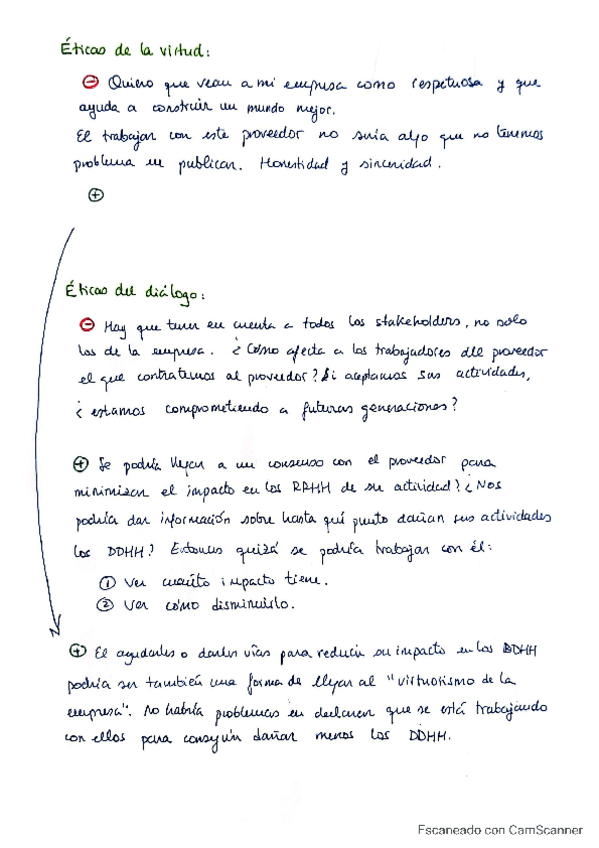 Éticas de la virtud:
⊖ Quiero que vean a mi empresa como respetuosa y que
ayuda a construir un mundo mejor.
El trabajar con este proveedor no sería algo que no tenemos
problema en publicar. Honestidad y sinceridad.
⊕
Éticas del diálogo:
⊖ Hay que tener en cuenta a todos los stakeholders, no solo
los de la empresa. ¿Cómo afecta a los trabajadores del proveedor
el que contratemos al proveedor? Si aceptamos sus actividades,
¿estamos comprometiendo a futuras generaciones?
⊕ Se podría llegar a un consenso con el proveedor para
minimizar el impacto en los RRHH de su actividad? ¿Nos
podría dar información sobre hasta qué punto dañan sus actividades
los DDHH? Entonces quizá se podría trabajar con él:
① Ver cuánto impacto tiene.
② Ver cómo disminuirlo.
⊕ El ayudarles o darles vías para reducir su impacto en los DDHH
podría ser también una forma de llegar al "virtuotismo de la
empresa". No habría problemas en declarar que se está trabajando
con ellos para conseguir dañar menos los DDHH.
Escaneado con CamScanner